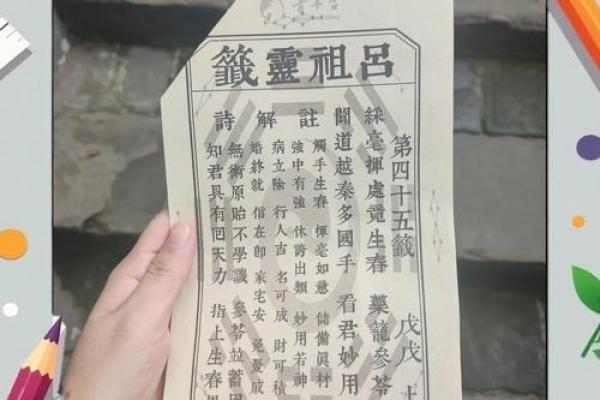 呂祖靈籤
第四十五籤 戊戌 上
綵毫揮處竟生春 藥籠參苓
聞道越秦多國手 看君妙用
註解詩
觸手生春 揮毫如意 儲備眞材
強中有強 休誇出類 妙用若神
病立除 行人吉 名可成 財可積
婚終就 信在即 家宅安
無術原貽不學譏 參苓並蓄
知君具有回天力 指上生春